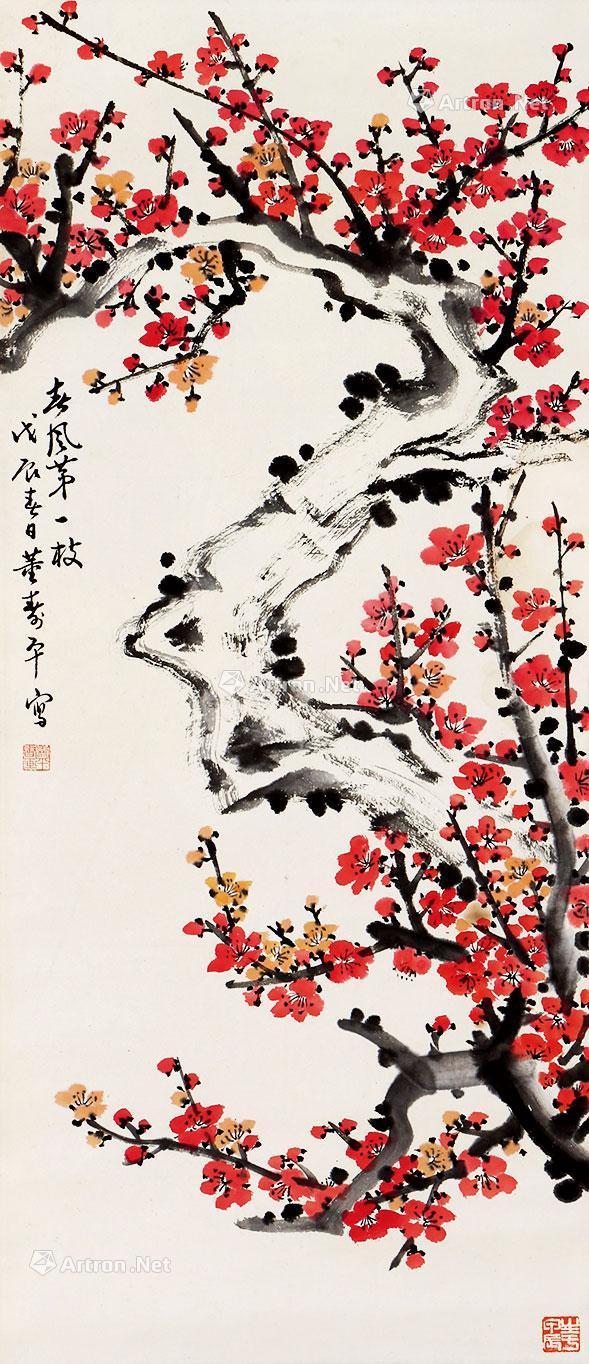 春风第一枝
戊辰春日董寿平写
Artron.Net
Artron.Net
Artron.Net